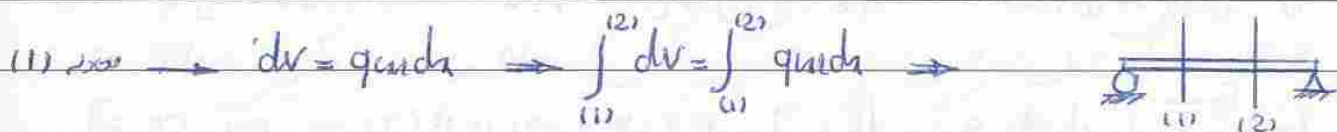 (1) → dv = q(x)dx ⇒ ∫₍₁₎⁽²⁾ dv = ∫₍₁₎⁽²⁾ q(x)dx ⇒
(1) (2)